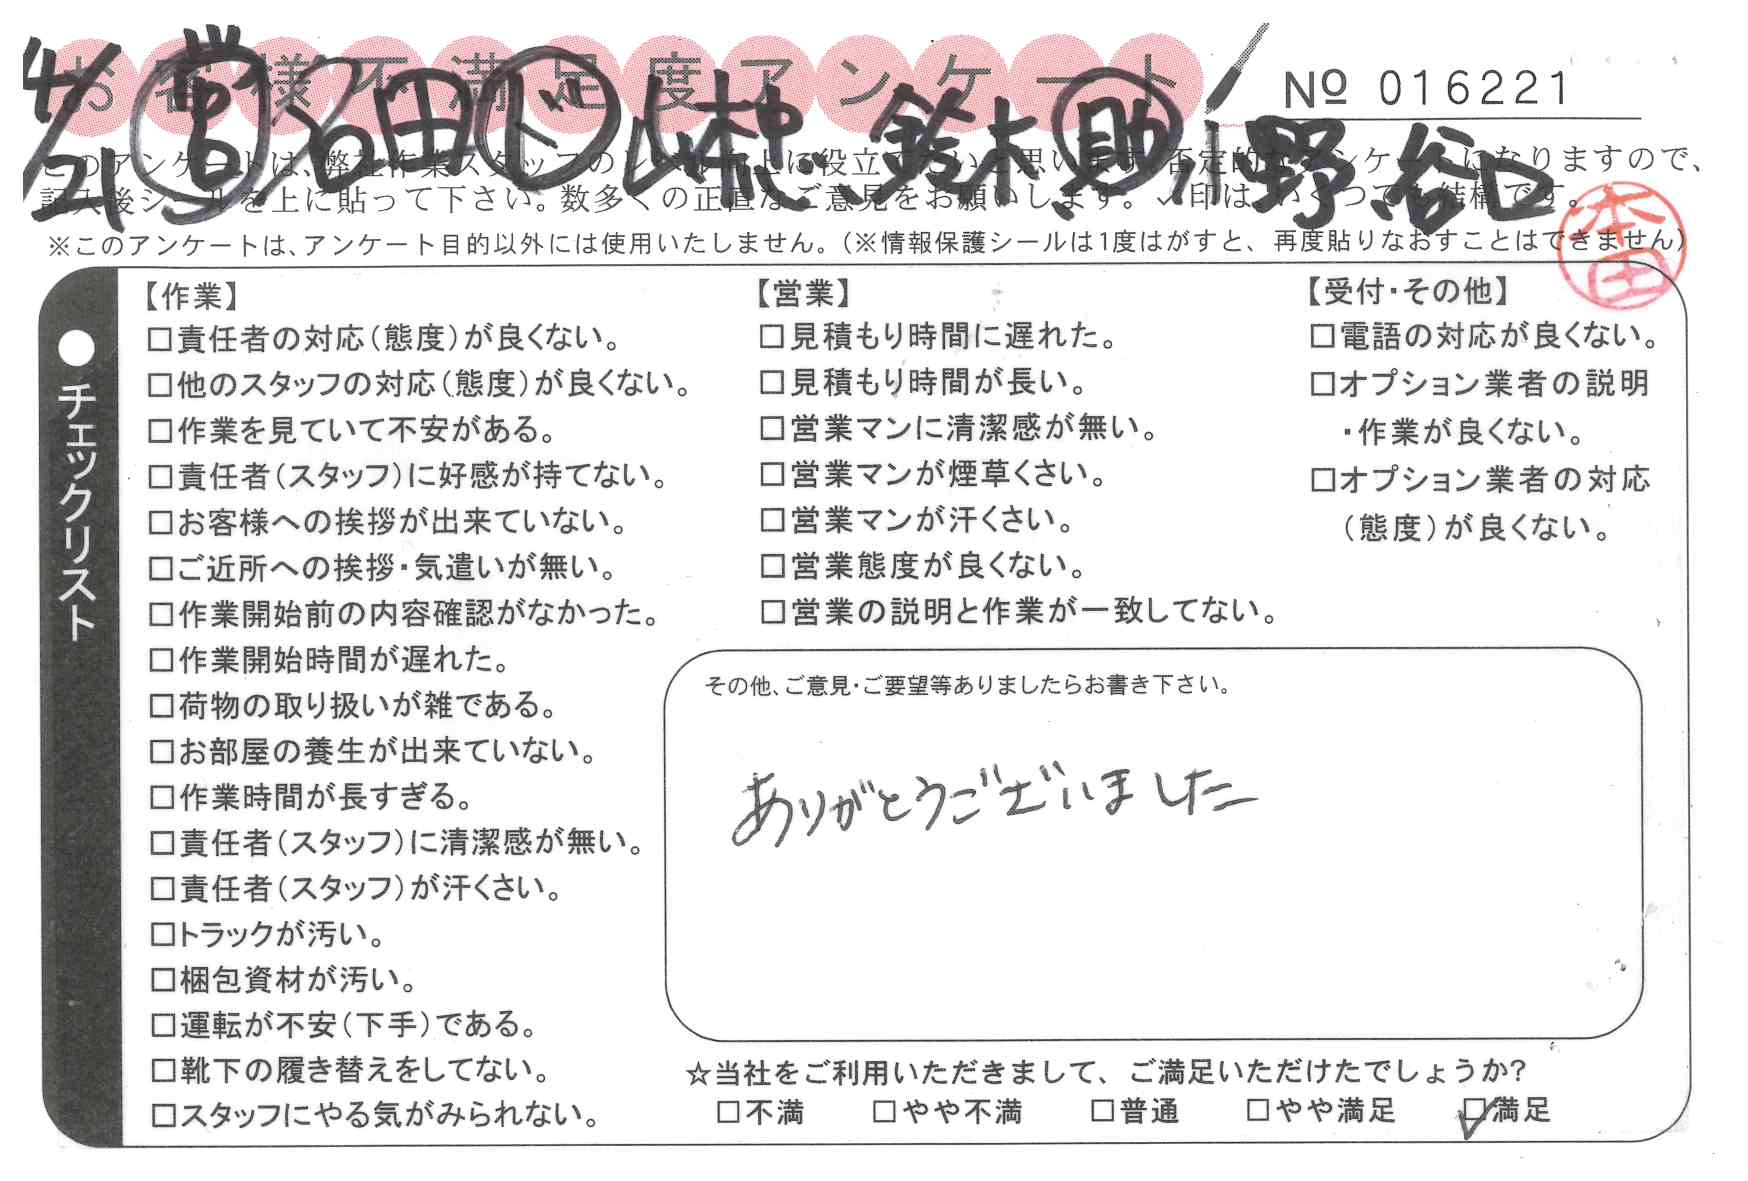 お客様不満足度アンケート
№ 016221
4/21 営 石田 ド 鈴木 助 小野 谷口
このアンケートは、弊社作業スタッフのレベル向上に役立てたいと思います。否定的なアンケートになりますので、
記入後シールを上に貼って下さい。数多くの正直なご意見をお願いします。✓印は、いくつでも結構です。
※このアンケートは、アンケート目的以外には使用いたしません。(※情報保護シールは1度はがすと、再度貼りなおすことはできません)
本田
●チェックリスト
【作業】
□責任者の対応(態度)が良くない。
□他のスタッフの対応(態度)が良くない。
□作業を見ていて不安がある。
□責任者(スタッフ)に好感が持てない。
□お客様への挨拶が出来ていない。
□ご近所への挨拶・気遣いが無い。
□作業開始前の内容確認がなかった。
□作業開始時間が遅れた。
□荷物の取り扱いが雑である。
□お部屋の養生が出来ていない。
□作業時間が長すぎる。
□責任者(スタッフ)に清潔感が無い。
□責任者(スタッフ)が汗くさい。
□トラックが汚い。
□梱包資材が汚い。
□運転が不安(下手)である。
□靴下の履き替えをしてない。
□スタッフにやる気がみられない。
【営業】
□見積もり時間に遅れた。
□見積もり時間が長い。
□営業マンに清潔感が無い。
□営業マンが煙草くさい。
□営業マンが汗くさい。
□営業態度が良くない。
□営業の説明と作業が一致してない。
【受付・その他】
□電話の対応が良くない。
□オプション業者の説明
・作業が良くない。
□オプション業者の対応
(態度)が良くない。
その他、ご意見・ご要望等ありましたらお書き下さい。
ありがとうございました
☆当社をご利用いただきまして、ご満足いただけたでしょうか?
□不満 □やや不満 □普通 □やや満足 ☑満足